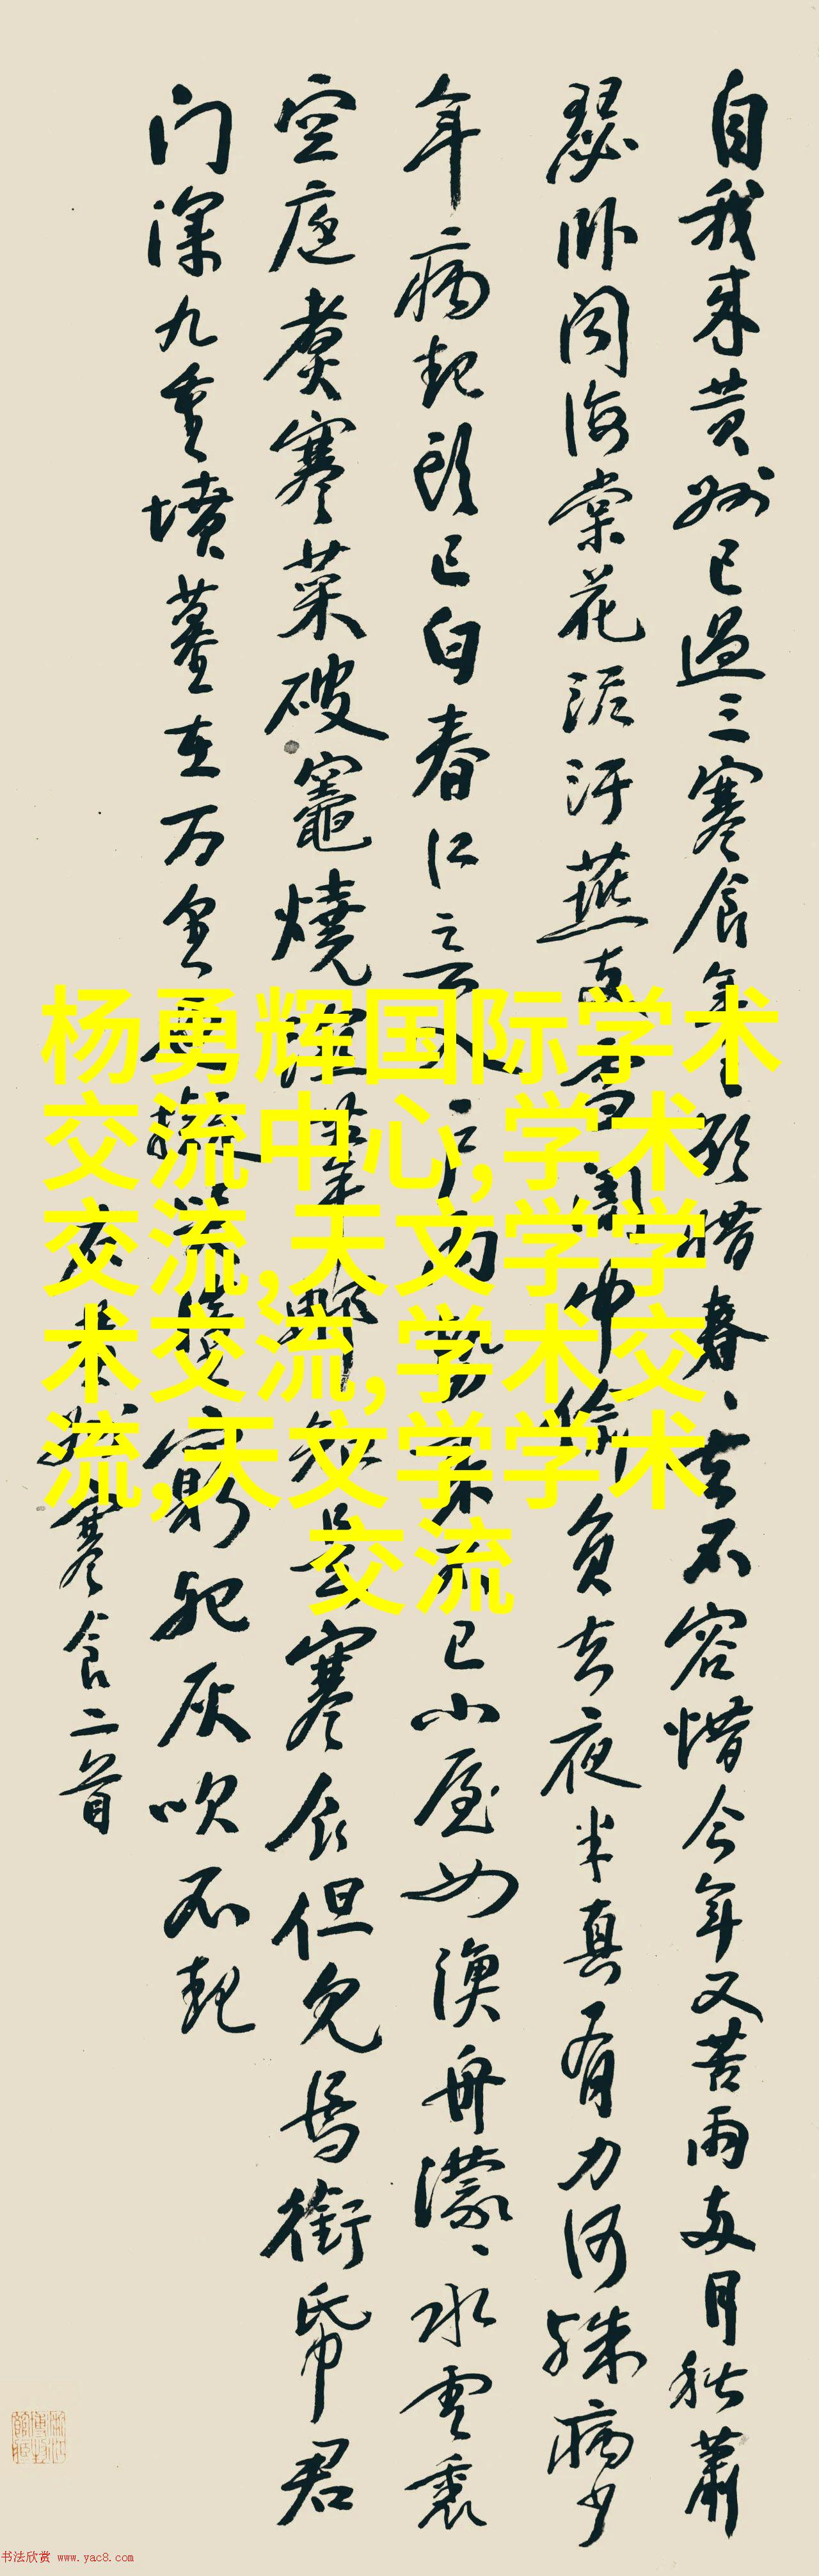 自我来黄州已過三寒食年〻欲惜春〻去不容惜今年又苦雨两月秋萧
瑟卧闻海棠花泥汙燕支雪闇中偷負去夜半真有力何殊病少
年病起头已白春江欲入户雨势来不已小屋如渔舟濛〻水雲裏
空庖煮寒菜破竈燒湿苇那知是寒食但見烏銜帋君
门深九重墳墓在万里也擬哭塗窮死灰吹不起
右黄州寒食二首
杨勇辉国际学术
交流中心,学术
交流,天文学学
术交流,学术交
流,天文学学术
交流
书法欣赏 www.yac8.com